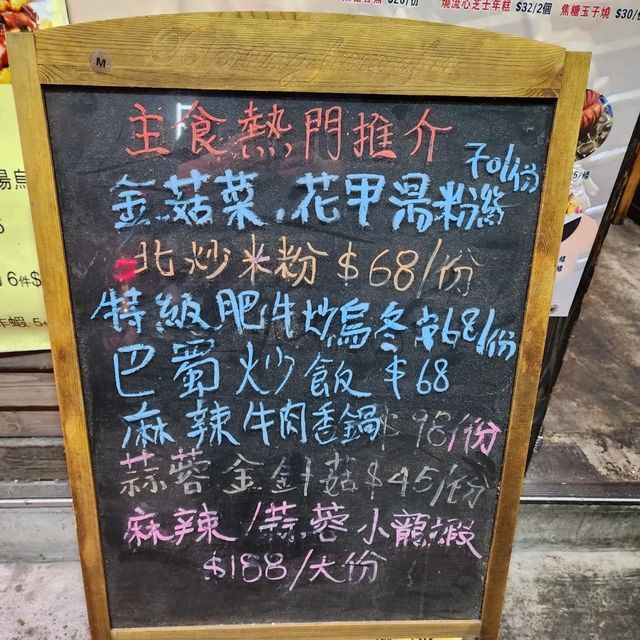 燒流心芝士年糕 $32/2個 焦糖玉子燒 $30/
M
主食熱門推介
70/份
金菇菜,花甲湯粉絲
北炒米粉 $68/份
特級肥牛炒烏冬 $68/份
巴蜀炒飯 $68
麻辣牛肉香鍋 $98/份
蒜蓉金針菇 $45/份
麻辣/蒜蓉小龍蝦
$188/大份
湯烏
6件$